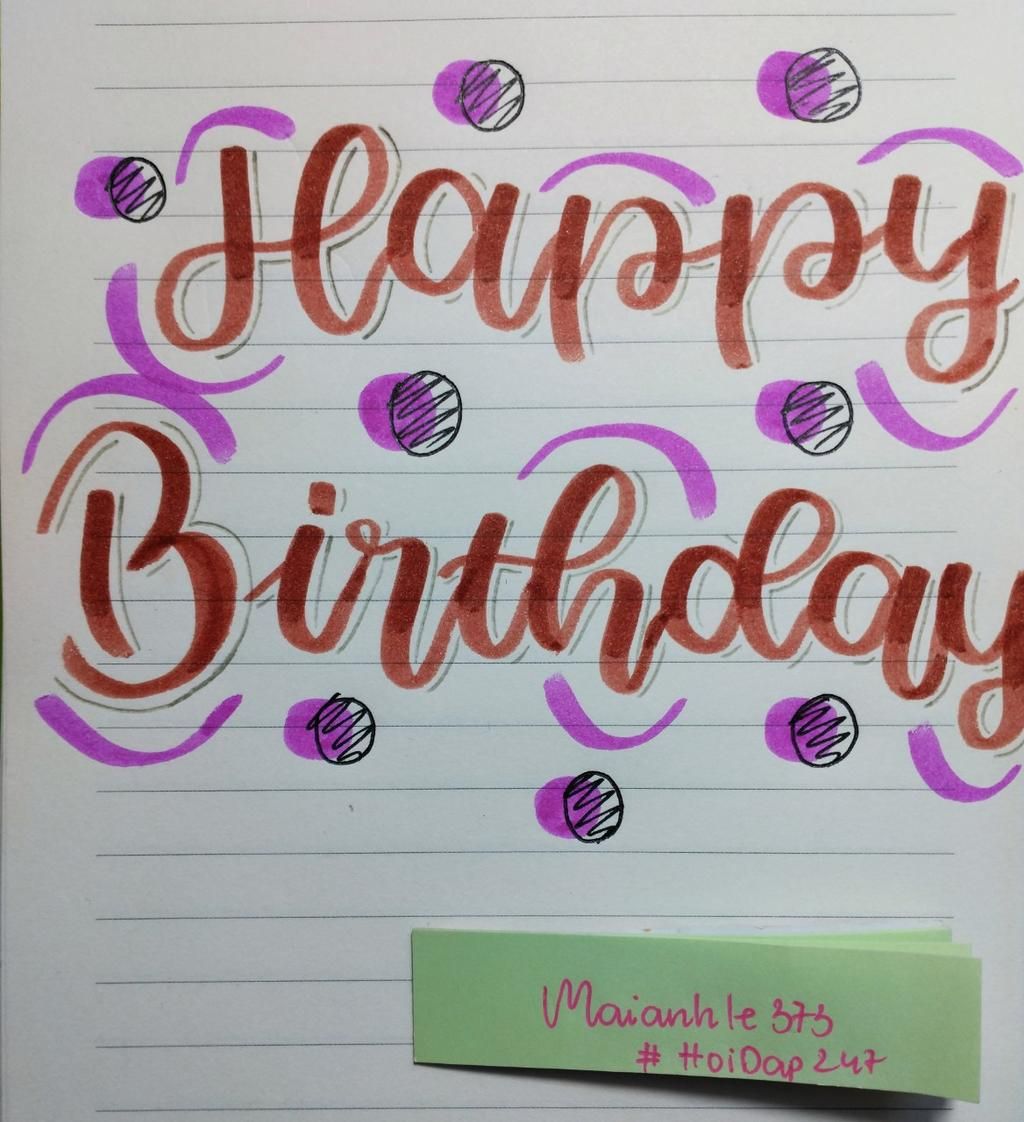 Happy
Birthday
Maianhle373
# HoiDap247